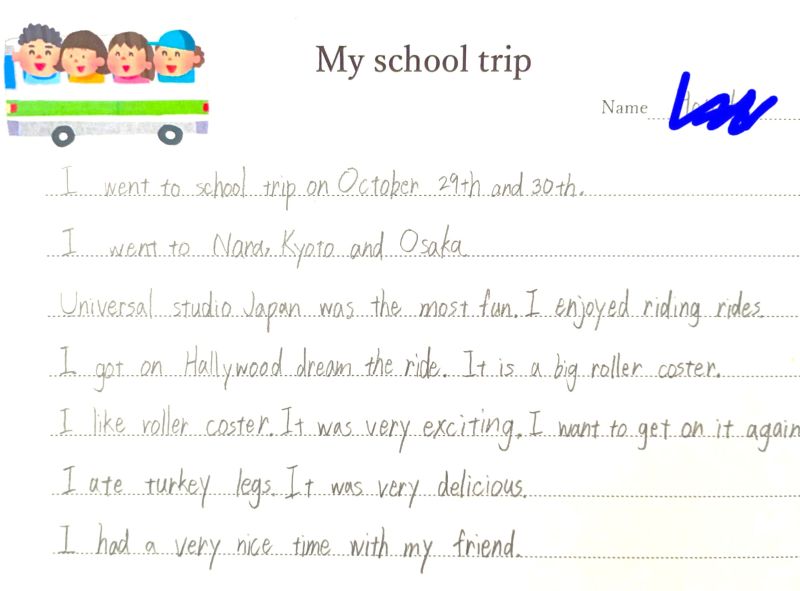 My school trip
Name
I went to school trip on October 29th and 30th.
I went to Nara, Kyoto and Osaka.
Universal studio Japan was the most fun. I enjoyed riding rides.
I got on Hallywood dream the ride. It is a big roller coster.
I like roller coster. It was very exciting. I want to get on it again
I ate turkey legs. It was very delicious.
I had a very nice time with my friend.